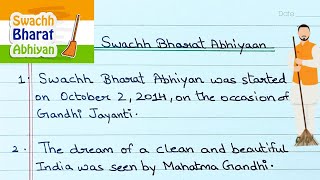 Swachh
Bharat
Abhiyan
Date
Swachh Bharat Abhiyaan
1. Swachh Bharat Abhiyan was started
on October 2, 2014, on the occasion of
Gandhi Jayanti.
2. The dream of a clean and beautiful
India was seen by Mahatma Gandhi.